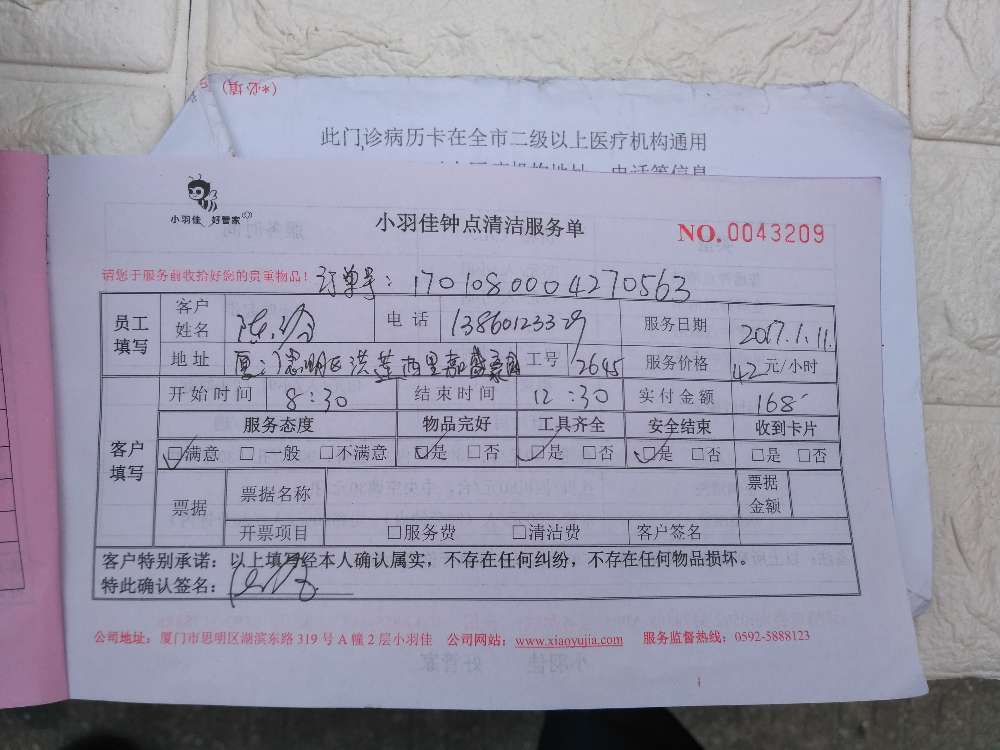 (*必填)
此门诊病历卡在全市二级以上医疗机构通用
电话等信息
小羽佳 好管家
小羽佳钟点清洁服务单
NO. 0043209
请您于服务前收拾好您的贵重物品！ 订单号：1701080004270563
员工填写 客户姓名 陈 电话 服务日期 2017.1.11.
地址 思明区洪莲西里 工号 2645 服务价格 42元/小时
开始时间 8:30 结束时间 12:30 实付金额 168
客户填写 服务态度 物品完好 工具齐全 安全结束 收到卡片
☑满意 □一般 □不满意 ☑是 □否 ☑是 □否 ☑是 □否 □是 □否
票据 票据名称 票据金额
开票项目 □服务费 □清洁费 客户签名
客户特别承诺：以上填写经本人确认属实，不存在任何纠纷，不存在任何物品损坏。
特此确认签名：
公司地址：厦门市思明区湖滨东路319号A幢2层小羽佳 公司网站：www.xiaoyujia.com 服务监督热线：0592-5888123